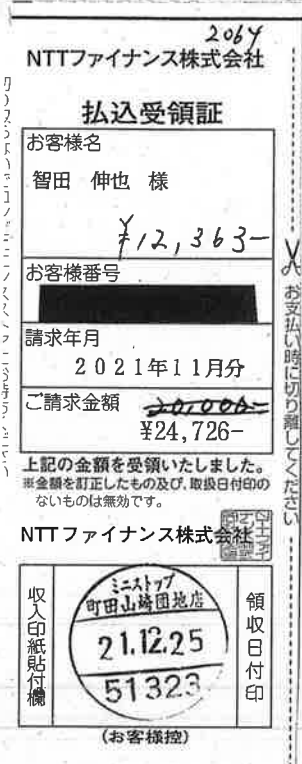 2064
NTTファイナンス株式会社
払込受領証
お客様名
智田 伸也 様
¥12,363-
お客様番号
請求年月
2021年11月分
ご請求金額
20,000-
¥24,726-
上記の金額を受領いたしました。
※金額を訂正したもの及び、取扱日付印の
ないものは無効です。
NTTファイナンス株式会社
収入印紙貼付欄
ミニストップ
町田山崎団地店
21.12.25
51323
領収日付印
(お客様控)
お支払い時に切り離してください